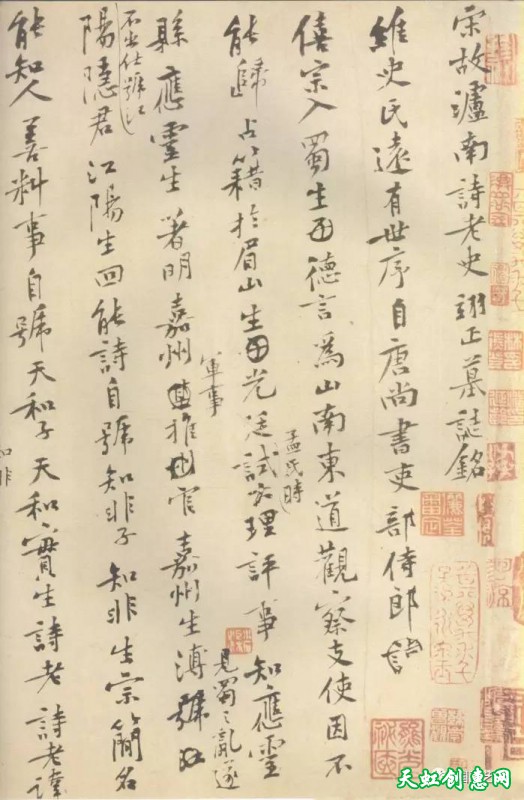 宋故瀘南詩老史翊正墓誌銘
維史氏遠有世序自唐尚書吏部侍郎
僖宗入蜀生德言為山南東道觀察支使因不
孟氏時
能歸占籍於眉山生光廷試大理評事知應靈
軍事
見蜀之亂遂
縣應靈生著明嘉州推官嘉州生溥號江
不出仕號江
陽隱君江陽生回能詩自號知非子知非生宗簡名
能知人善料事自號天和子天和實生詩老詩老諱
天虹创意网